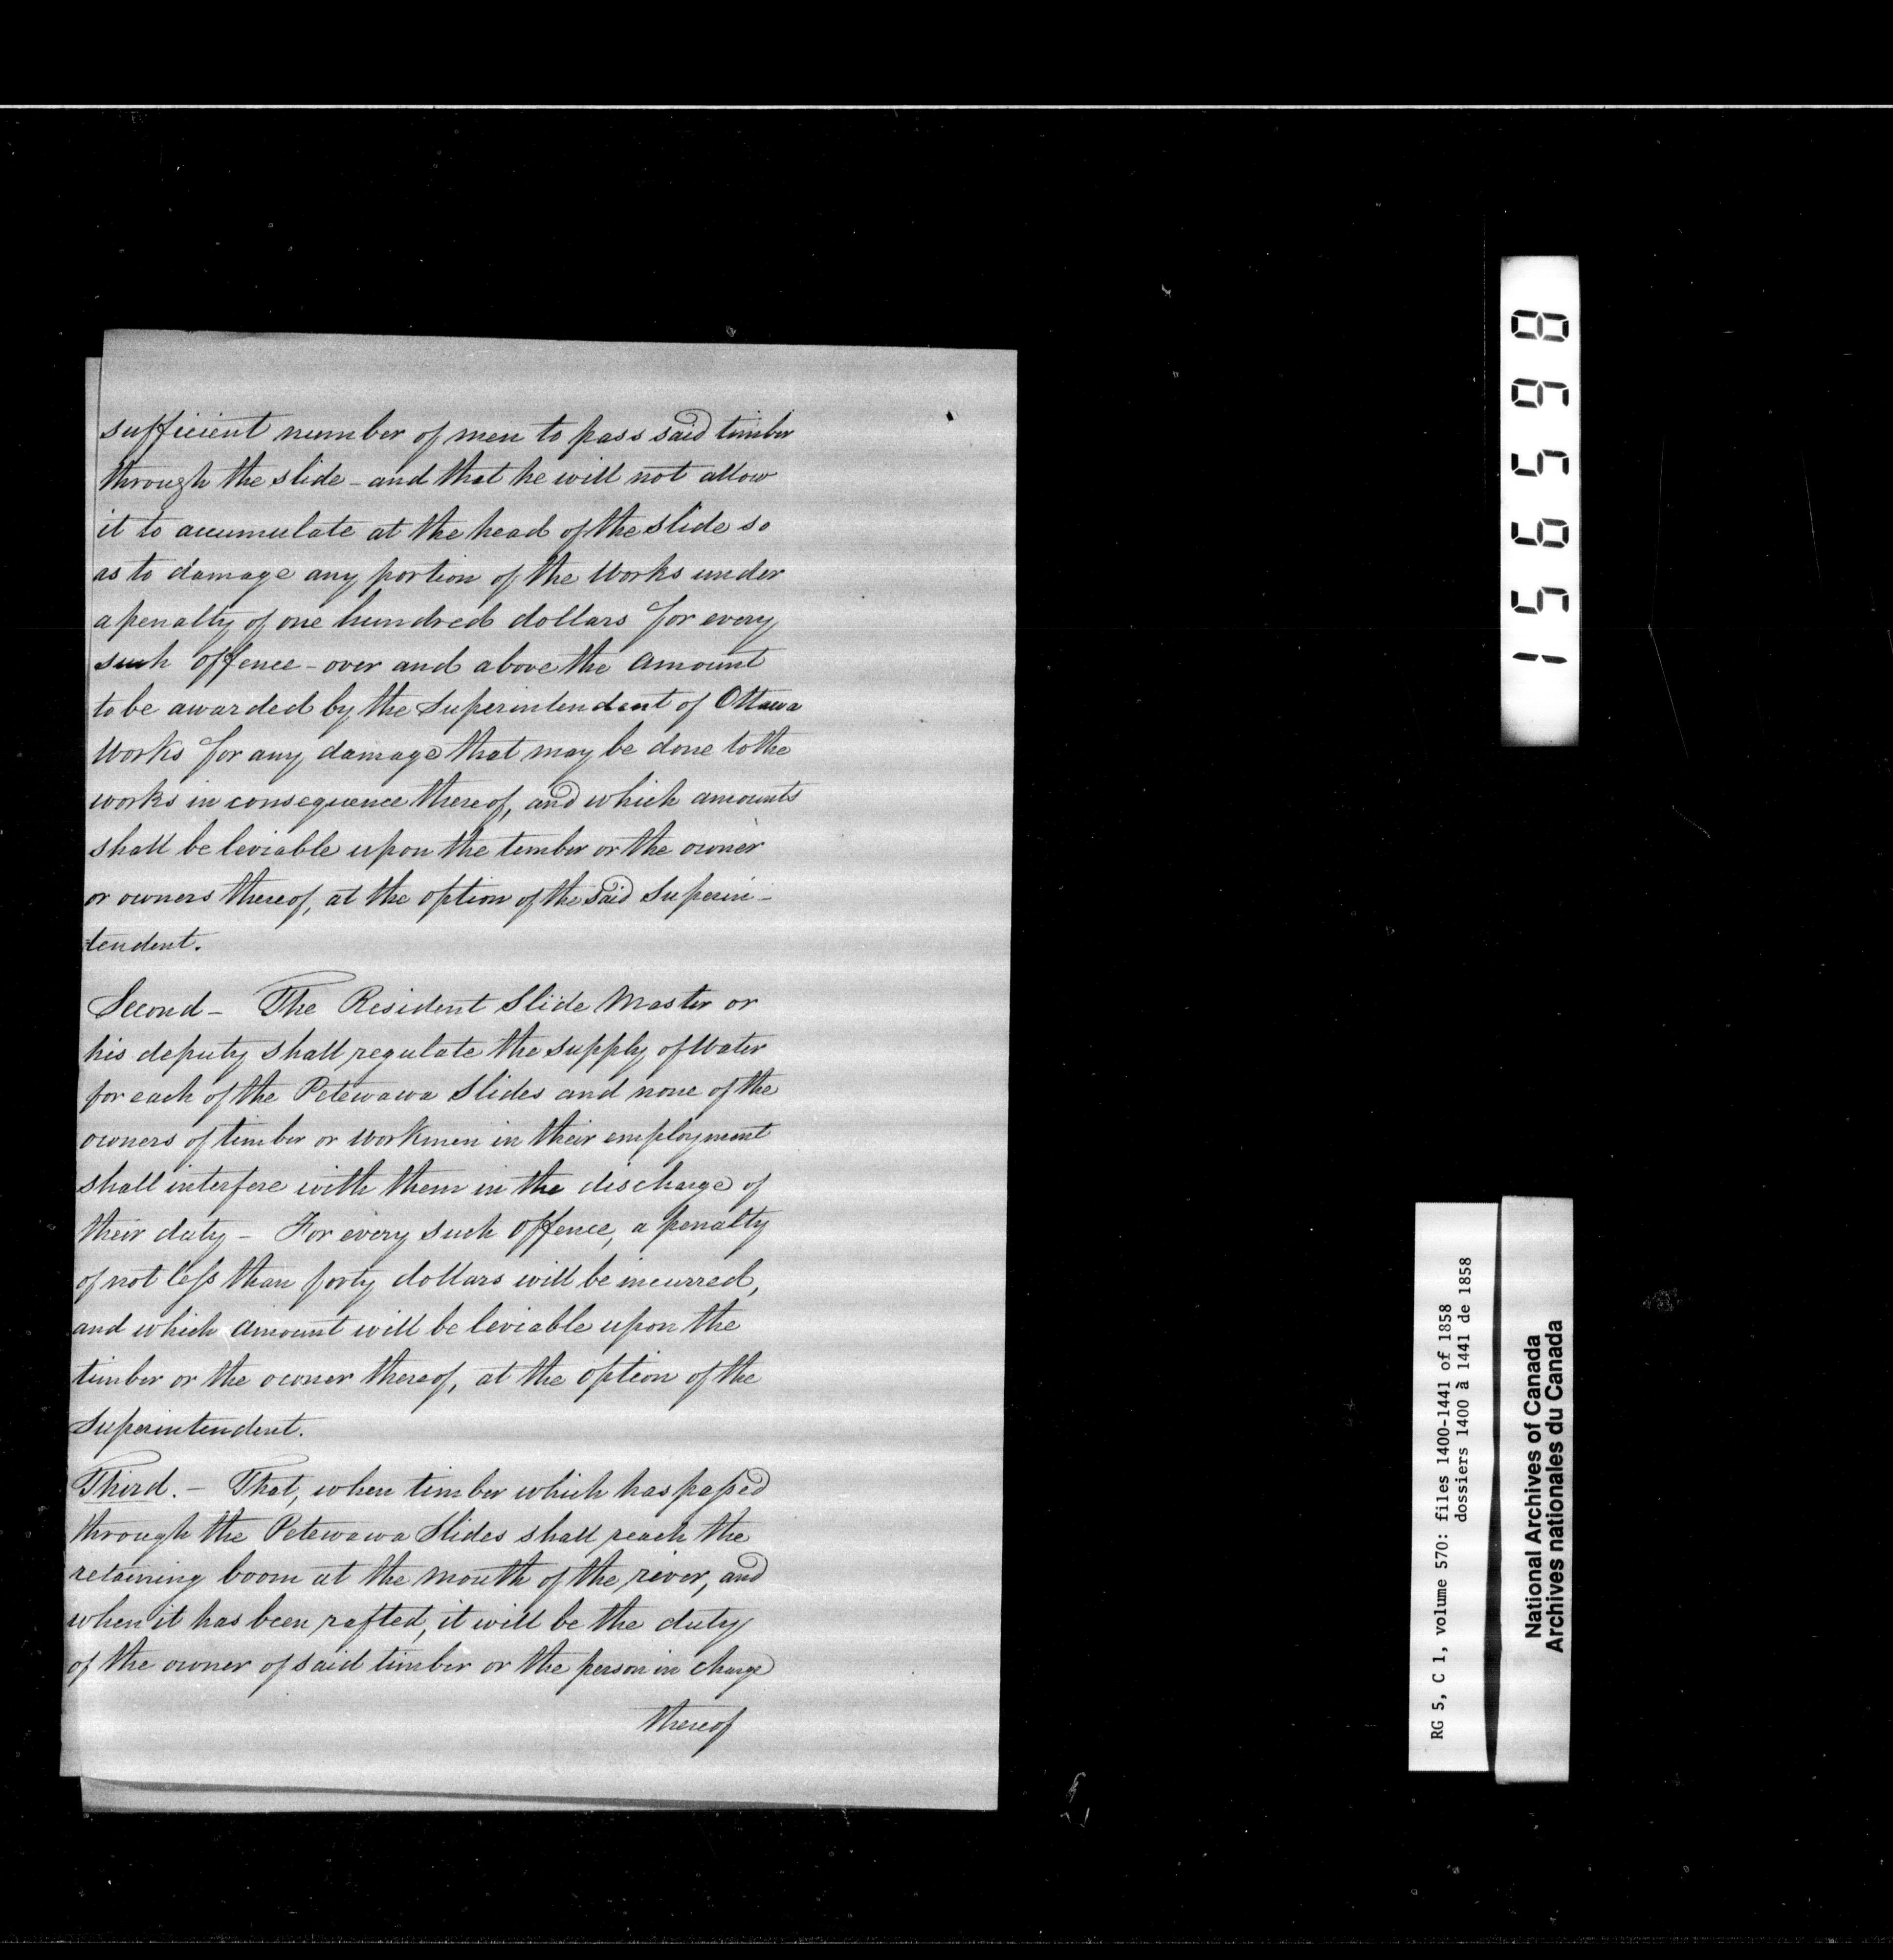 sufficient number of men to pass said timber
through the slide - and that he will not allow
it to accumulate at the head of the slide so
as to damage any portion of the Works under
a penalty of one hundred dollars for every
such offence - over and above the amount
to be awarded by the Superintendent of Ottawa
Works for any damage that may be done to the
works in consequence thereof, and which amounts
shall be leviable upon the timber or the owner
or owners thereof, at the option of the said Superin-
tendent.
Second - The Resident Slide Master or
his deputy shall regulate the supply of Water
for each of the Petewawa Slides and none of the
owners of timber or Workmen in their employment
shall interfere with them in the discharge of
their duty - For every such offence, a penalty
of not less than forty dollars will be incurred,
and which amount will be leviable upon the
timber or the owner thereof, at the option of the
Superintendent.
Third. - That, when timber which has passed
through the Petewawa Slides shall reach the
retaining boom at the mouth of the river, and
when it has been rafted, it will be the duty
of the owner of said timber or the person in charge
thereof
156598
RG 5, C 1, volume 570: files 1400-1441 of 1858
dossiers 1400 à 1441 de 1858
National Archives of Canada
Archives nationales du Canada